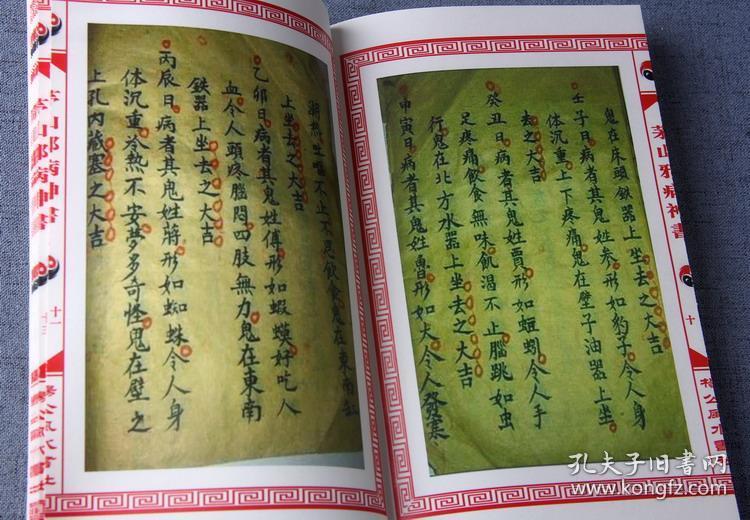 茅山邪病神書
十
楊公風水書
鬼在床頭鉄器上坐去之大吉
壬子日病者其鬼姓参形如豹子令人身
体沉重上下疼痛鬼在壁子油器上坐
去之大吉
癸丑日病者其鬼姓賈形如蚯蚓令人手
足疼痛飲食無味飢渴不止腦跳如虫
行鬼在北方水器上坐去之大吉
甲寅日病者其鬼姓魯形如犬令人發寒
潮熱吐嘔不止不思飲食鬼在東南缸
上坐去之大吉
乙卯日病者其鬼姓傅形如蝦蟆好吃人
血令人頭疼腦悶四肢無力鬼在東南
鉄器上坐去之大吉
丙辰日病者其鬼姓蔣形如蜘蛛令人身
体沉重冷熱不安夢多奇怪鬼在壁之
上孔内蔵塞之大吉
茅山邪病神書
十一
楊公風水書社
茅山邪病神書
十三
孔夫子旧書网
www.kongfz.com